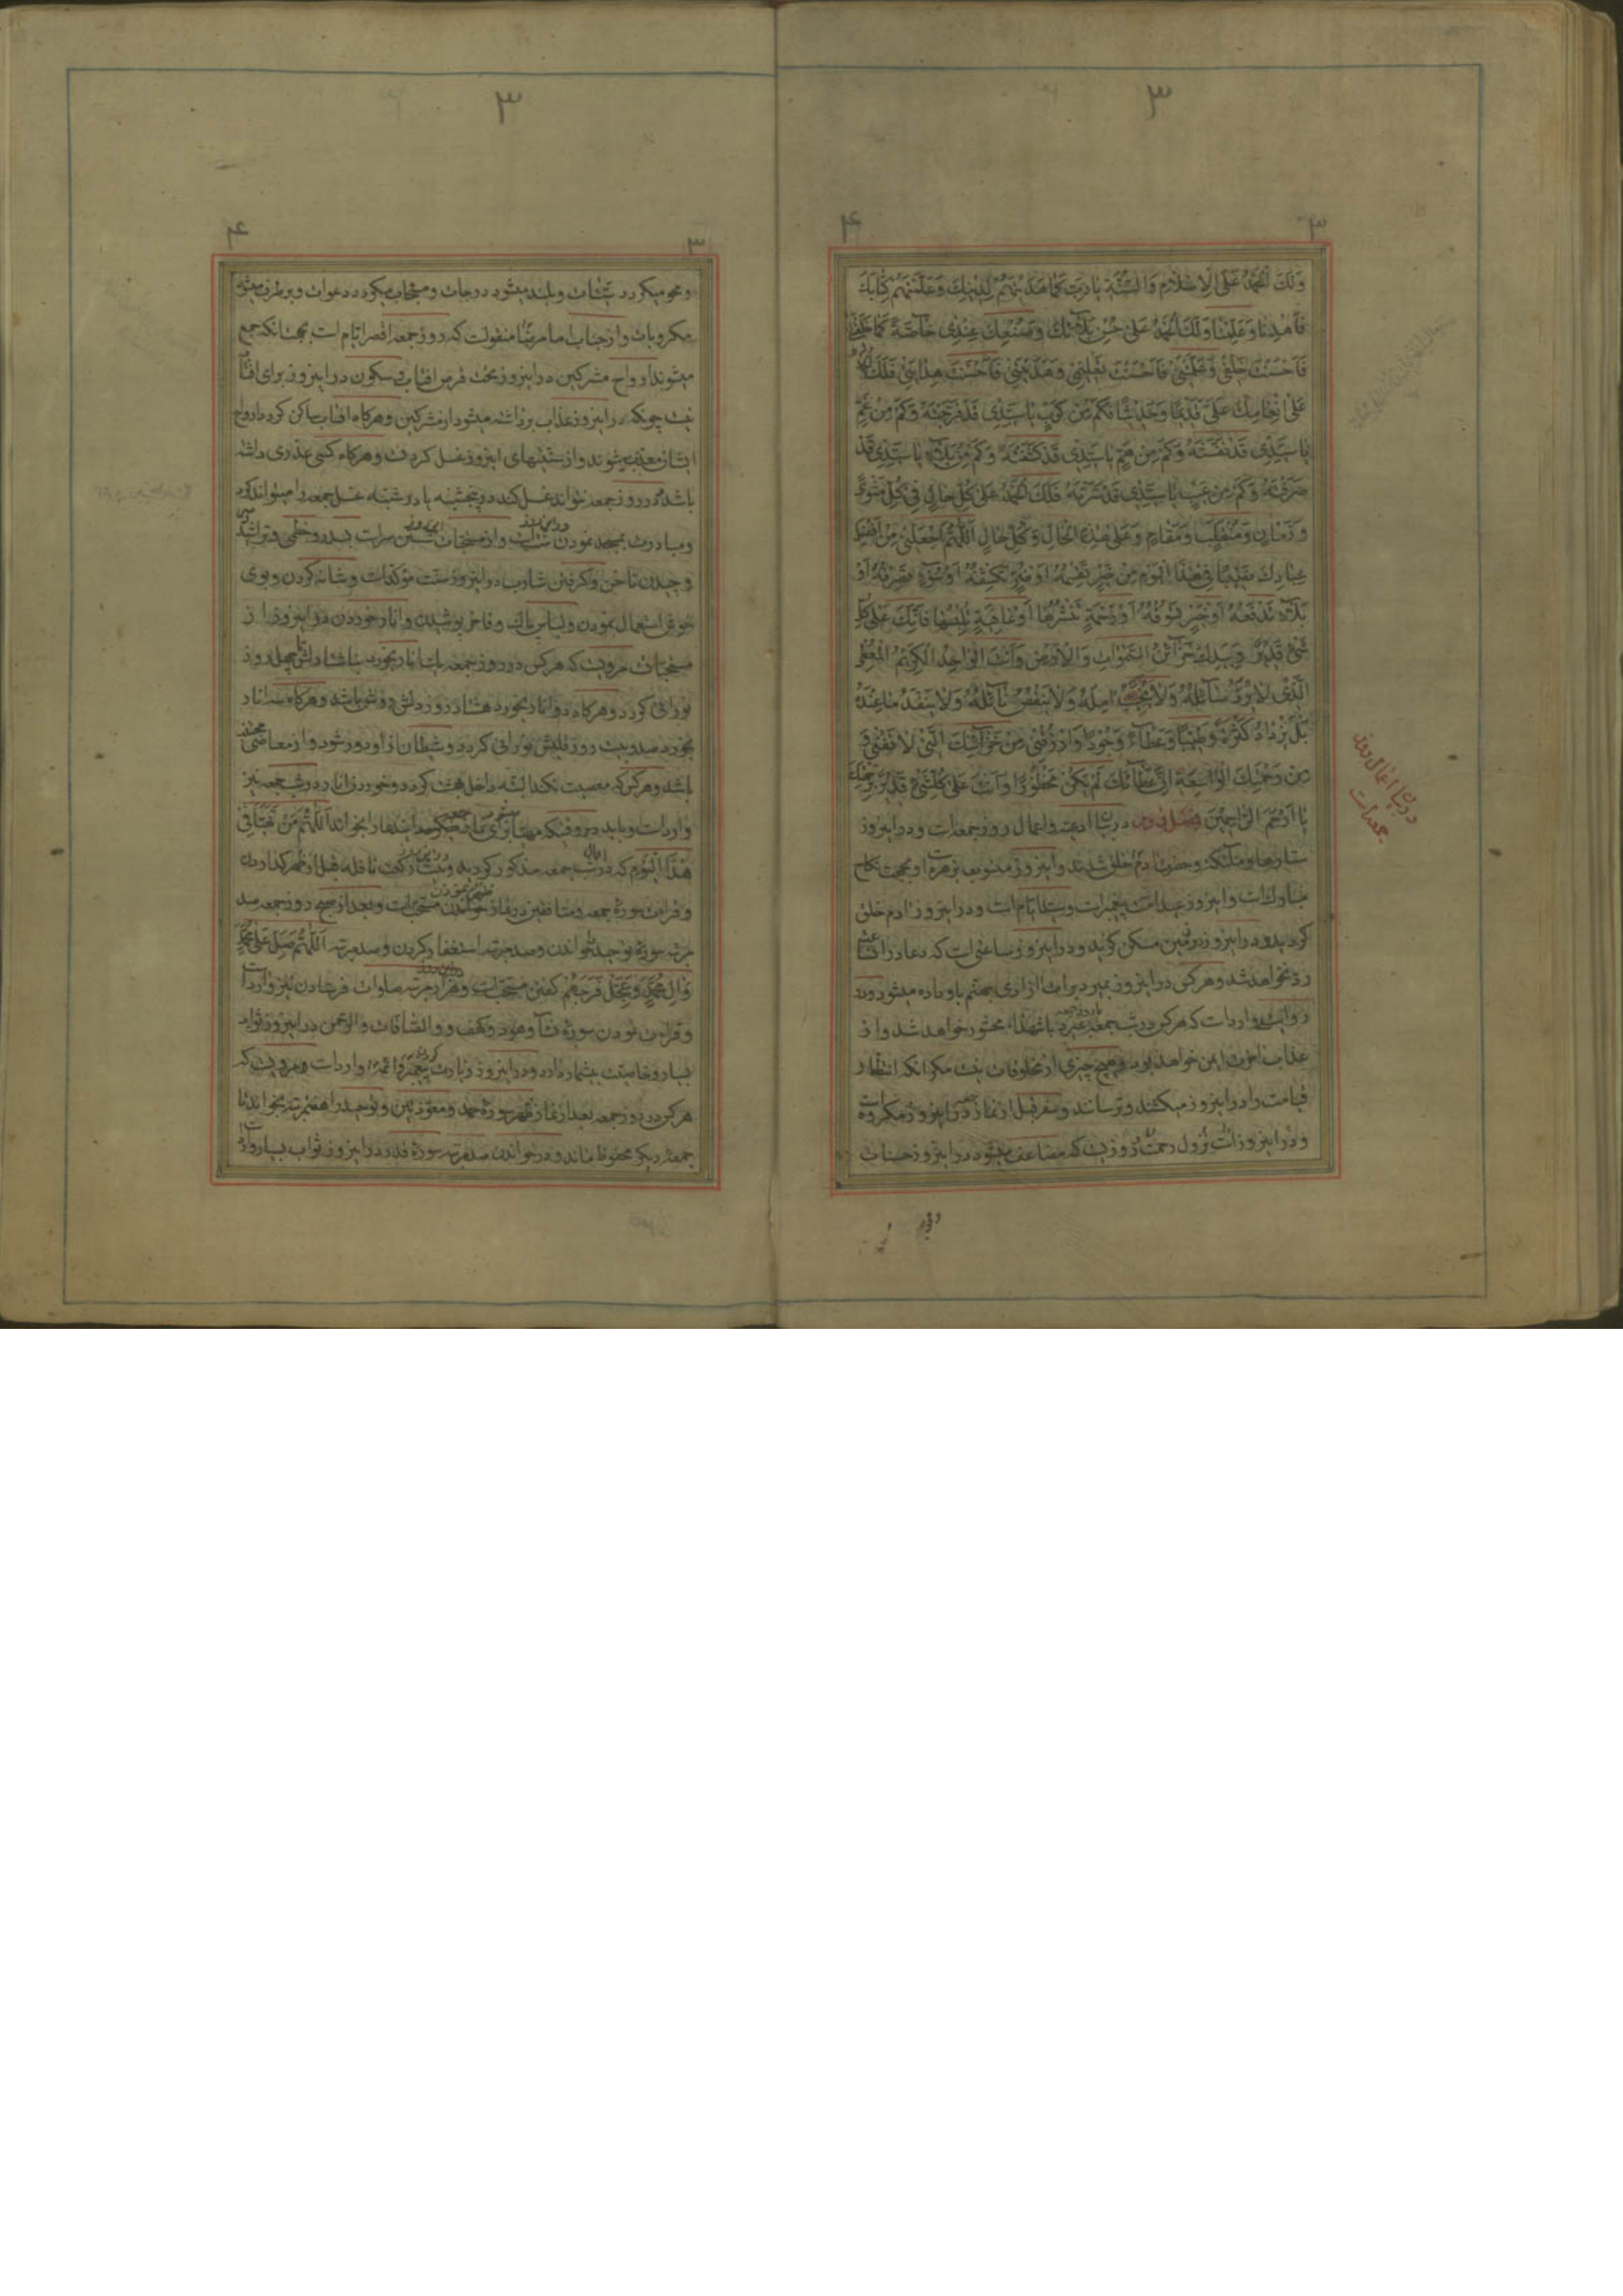 ۳
۳
۴
وَلَكَ الْحَمْدُ عَلَى الْاِسْلَامِ وَالسُّنَّةِ يَا رَبِّ كَمَا هَدَيْتَهُمْ لِدِينِكَ وَعَلَّمْتَهُمْ كِتَابَكَ
فَاهْدِنَا وَعَلِّمْنَا وَلَكَ الْحَمْدُ عَلَى حُسْنِ بَلَائِكَ وَصُنْعِكَ عِنْدِي خَاصَّةً كَمَا خَلَقْتَنِي
فَاَحْسَنْتَ خَلْقِي وَعَلَّمْتَنِي فَاَحْسَنْتَ تَعْلِيمِي وَهَدَيْتَنِي فَاَحْسَنْتَ هِدَايَتِي فَلَكَ الْحَمْدُ
عَلَى اِنْعَامِكَ عَلَيَّ قَدِيمًا وَحَدِيثًا فَكَمْ مِنْ كَرْبٍ يَا سَيِّدِي قَدْ فَرَّجْتَهُ وَكَمْ مِنْ غَمٍّ
يَا سَيِّدِي قَدْ نَفَّسْتَهُ وَكَمْ مِنْ هَمٍّ يَا سَيِّدِي قَدْ كَشَفْتَهُ وَكَمْ مِنْ بَلَاءٍ يَا سَيِّدِي قَدْ
صَرَفْتَهُ وَكَمْ مِنْ عَيْبٍ يَا سَيِّدِي قَدْ سَتَرْتَهُ فَلَكَ الْحَمْدُ عَلَى كُلِّ حَالٍ فِي كُلِّ مَثْوًى
وَزَمَانٍ وَمُنْقَلَبٍ وَمَقَامٍ وَعَلَى هَذِهِ الْحَالِ وَكُلِّ حَالٍ اَللّٰهُمَّ اجْعَلْنِي مِنْ اَفْضَلِ
عِبَادِكَ نَصِيبًا فِي هَذَا الْيَوْمِ مِنْ خَيْرٍ تَقْسِمُهُ اَوْ ضُرٍّ تَكْشِفُهُ اَوْ سُوءٍ تَصْرِفُهُ اَوْ
بَلَاءٍ تَدْفَعُهُ اَوْ خَيْرٍ تَسُوقُهُ اَوْ رَحْمَةٍ تَنْشُرُهَا اَوْ عَافِيَةٍ تُلْبِسُهَا فَاِنَّكَ عَلَى كُلِّ
شَيْءٍ قَدِيرٌ وَبِيَدِكَ خَزَائِنُ السَّمٰوَاتِ وَالْاَرْضِ وَاَنْتَ الْوَاحِدُ الْكَرِيمُ الْمُعْطِي
الَّذِي لَا يُرَدُّ سَائِلُهُ وَلَا يُخَيَّبُ اٰمِلُهُ وَلَا يَنْقُصُ نَائِلُهُ وَلَا يَنْفَدُ مَا عِنْدَهُ
بَلْ يَزْدَادُ كَثْرَةً وَطِيبًا وَعَطَاءً وَجُودًا وَارْزُقْنِي مِنْ خَزَائِنِكَ الَّتِي لَا تَفْنَى وَ
مِنْ رَحْمَتِكَ الْوَاسِعَةِ اِنَّ عَطَائَكَ لَمْ يَكُنْ مَحْظُورًا وَاَنْتَ عَلَى كُلِّ شَيْءٍ قَدِيرٌ بِرَحْمَتِكَ
يَا اَرْحَمَ الرَّاحِمِينَ فصل دوم در بیان ادعیه و اعمال روز جمعه است و در این روز
ستارها و ملائکه و حضرت ادم خلق شدند و این روز منسوب بزهره است و بجهت نکاح
مبارک است و این روز عید امت پیغمبر است و سید ایام است و در این روز ادم خلق
کردید و در این روز در زمین مسکن کزید و در این روز ساعتی است که دعا در آن ساعت
رد نخواهد شد و هر کس در این روز بمیرد برات ازادی جهنم باو داده میشود و در
روایت وارد است که هر کس در شب جمعه یا روز جمعه بمیرد با شهداء محشور خواهد شد و از
عذاب اخرت ایمن خواهد بود و هیچ چیزی از مخلوقات نیست مکر انکه انتظار
قیامت را در این روز میکشند و ترسانند و سفر قبل از نماز جمعه در این روز مکروه است
و در این روز است نزول رحمت و روزیست که مضاعف میشود در این روز حسنات
در بیان اعمال روز
جمعه است
۳
۳
۴
و محو میکردد سیئات و بلند میشود درجات و مستجاب میکردد دعوات و برطرف میشود
مکروهات و از جناب امام رضا منقولست که روز جمعه اقصر ایام است بجهت انکه جمع
میشوند ارواح مشرکین در این روز تحت قرص افتاب و سکون در این روز برای افتاب
نیست چونکه در این روز عذاب برداشته میشود از مشرکین و هرکاه افتاب ساکن کردد ارواح
ایشان معذب میشوند و از سنتهای این روز غسل کردنست و هرکاه کسی عذری داشته
باشد که در روز جمعه نتواند غسل کند در پنجشنبه یا در شنبه غسل جمعه را میتواند کرد
و مبادرت بمسجد نمودن در این روز سنت است و از مستحبات این روز شستن سر است بسدر و خطمی و سر تراشیدن
و چیدن ناخن و کرفتن شارب در این روز سنت مؤکد است و شانه کردن و بوی
خوش استعمال نمودن و لباس پاک و فاخر پوشیدن و انار خوردن در این روز از
مستحبات مرویست که هر کس در روز جمعه یک انار بخورد ناشتا دلش تا چهل روز
نورانی کردد و هرکاه دو انار بخورد هشتاد روز دلش روشن باشد و هرکاه سه انار
بخورد صد و بیست روز قلبش نورانی کردد و شیطان از او دور شود و از معاصی مجتنب
باشد و هر کس که معصیت نکند البته داخل بهشت کردد و خوردن انار در شب جمعه نیز
وارد است و باید در وقتیکه مهیا برای نماز جمعه میشوی این دعا را بخواند اَللّٰهُمَّ مَنْ تَهَيَّأَ فِي
هٰذَا الْيَوْمِ که در اعمال شب جمعه مذکور کردید و بیست رکعت نافله قبل از ظهر کذاردن
و قرائت سوره جمعه و منافقین در نماز صبح خواندن مستحب است و بعد از صبح روز جمعه صد
مرتبه سوره توحید خواندن و صد مرتبه استغفار کردن و صد مرتبه اَللّٰهُمَّ صَلِّ عَلَى مُحَمَّدٍ
وَاٰلِ مُحَمَّدٍ وَعَجِّلْ فَرَجَهُمْ کفتن مستحب است و هزار مرتبه صلوات فرستادن نیز وارد است
و قرائت نمودن سوره نساء و هود و کهف و والصافات و الرحمن در این روز ثواب
بسیار و خاصیت بیشمار دارد و در این روز زیارت پیغمبر و ائمه وارد است و مرویست که
هر کس در روز جمعه بعد از نماز ظهر سوره حمد و معوذتین و توحید را هفت مرتبه بخواند تا
جمعه دیکر محفوظ ماند و در خواندن صد مرتبه سوره قدر در این روز ثواب بسیار وارد است